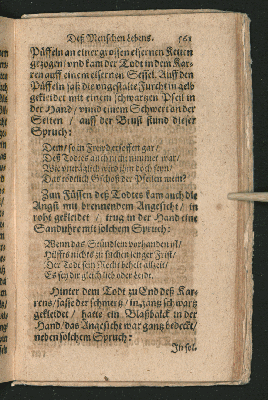 Deß Menschen Lebens. 561
Püffeln an einer grossen eisernen Ketten
gezogen/ vnd kam der Todt in dem Kar-
ren auff einem eisernen Sessel. Auff den
Püffeln saß die vngestalte Furcht in gelb
gekleidet mit einem schwartzen Pfeil in
der Hand/ vnd einem Schwert an der
Seiten / auff der Brust stund dieser
Spruch:
Dem/ so ein Freund
Deß Todtes auch nicht nimmer war/
Wie wurd auch wird ihm doch seyn/
Das tödtlich Geschoß der Pfeilen mein?
Zun Füssen deß Todtes kam auch die
Angst mit brennendem Angesicht/ in
roht gekleidet / trug in der Hand eine
Sanduhre mit solchem Spruch:
Wenn das Stündlein vorhanden ist/
Hilffts nichts zu suchen lenger Frist/
Der Todt sein Recht behelt allzeit/
Es sey dir gleich lieb oder leidt.
Hinter dem Todt zu End deß Kar-
rens/ sasse der schmertz/ in gantz schwartz
gekleidet/ hatte ein Blaßbalck in der
Hand/ das Angesicht war gantz bedeckt/
neben solchem Spruch:
In sol-